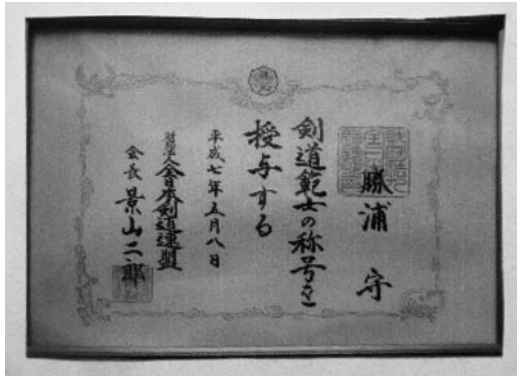 勝浦 守
剣道範士の称号を
授与する
平成七年五月八日
財団法人全日本剣道連盟
会長 景山二郎